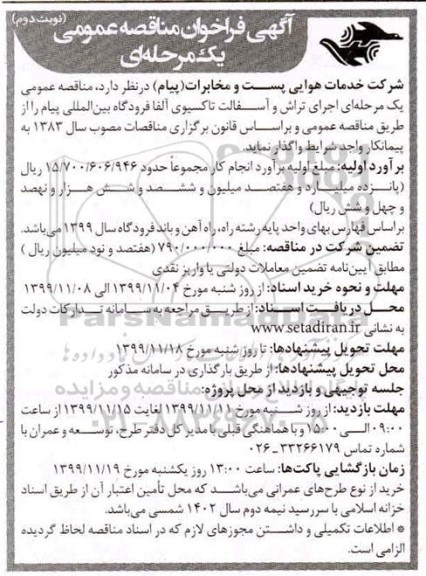 (نوبت دوم)
آگهی فراخوان مناقصه عمومی
یک مرحله‌ای
شرکت خدمات هوایی پست و مخابرات(پیام) درنظر دارد، مناقصه عمومی
یک مرحله‌ای اجرای تراش و آسفالت تاکسیوی آلفا فرودگاه بین‌المللی پیام را از
طریق مناقصه عمومی و براساس قانون برگزاری مناقصات مصوب سال ۱۳۸۳ به
پیمانکار واجد شرایط واگذار نماید.
برآورد اولیه: مبلغ اولیه برآورد انجام کار مجموعاً حدود ۱۵/۷۰۰/۶۰۶/۹۴۶ ریال
(پانزده میلیارد و هفتصد میلیون و ششصد و شش هزار و نهصد
و چهل و شش ریال)
براساس فهارس بهای واحد پایه رشته راه، راه آهن و باند فرودگاه سال ۱۳۹۹ می‌باشد.
تضمین شرکت در مناقصه: مبلغ ۷۹۰/۰۰۰/۰۰۰ (هفتصد و نود میلیون ریال)
مطابق آیین‌نامه تضمین معاملات دولتی یا واریز نقدی
مهلت و نحوه خرید اسناد: از روز شنبه مورخ ۱۳۹۹/۱۱/۰۴ الی ۱۳۹۹/۱۱/۰۸
محل دریافت اسناد: از طریق مراجعه به سامانه تدارکات دولت
به نشانی www.setadiran.ir
مهلت تحویل پیشنهادها: تا روز شنبه مورخ ۱۳۹۹/۱۱/۱۸
محل تحویل پیشنهادها: از طریق بارگذاری در سامانه مذکور
جلسه توجیهی و بازدید از محل پروژه:
مهلت بازدید: از روز شنبه مورخ ۱۳۹۹/۱۱/۱۱ لغایت ۱۳۹۹/۱۱/۱۵ از ساعت
۰۹:۰۰ الی ۱۵:۰۰ و با هماهنگی قبلی با مدیر کل دفتر طرح، توسعه و عمران با
شماره تماس ۳۳۲۶۶۱۷۹-۰۲۶
زمان بازگشایی پاکت‌ها: ساعت ۱۳:۰۰ روز یکشنبه مورخ ۱۳۹۹/۱۱/۱۹
خرید از نوع طرح‌های عمرانی می‌باشد که محل تأمین اعتبار آن از طریق اسناد
خزانه اسلامی با سررسید نیمه دوم سال ۱۴۰۲ شمسی می‌باشد.
* اطلاعات تکمیلی و داشتن مجوزهای لازم که در اسناد مناقصه لحاظ گردیده
الزامی است.